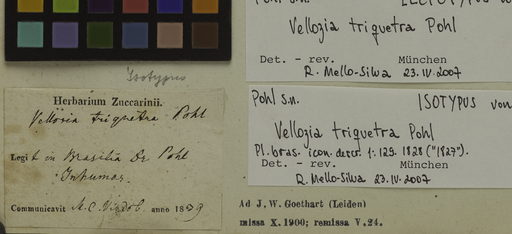 Isotypus
Herbarium Zuccarinii.
Vellosia triquetra Pohl
Legit in Brasilia Dr. Pohl
Inhumas.
Communicavit M. C. Vindob. anno 1839
Vellozia triquetra Pohl
Det. - rev. München
R. Mello-Silva 23.IV.2007
Pohl s.n. ISOTYPUS von
Vellozia triquetra Pohl
Pl. bras. icon. descr. 1: 125. 1828 ("1827").
Det. - rev. München
R. Mello-Silva 23.IV.2007
Ad J. W. Goethart (Leiden)
missa X. 1900; remissa V. 24.